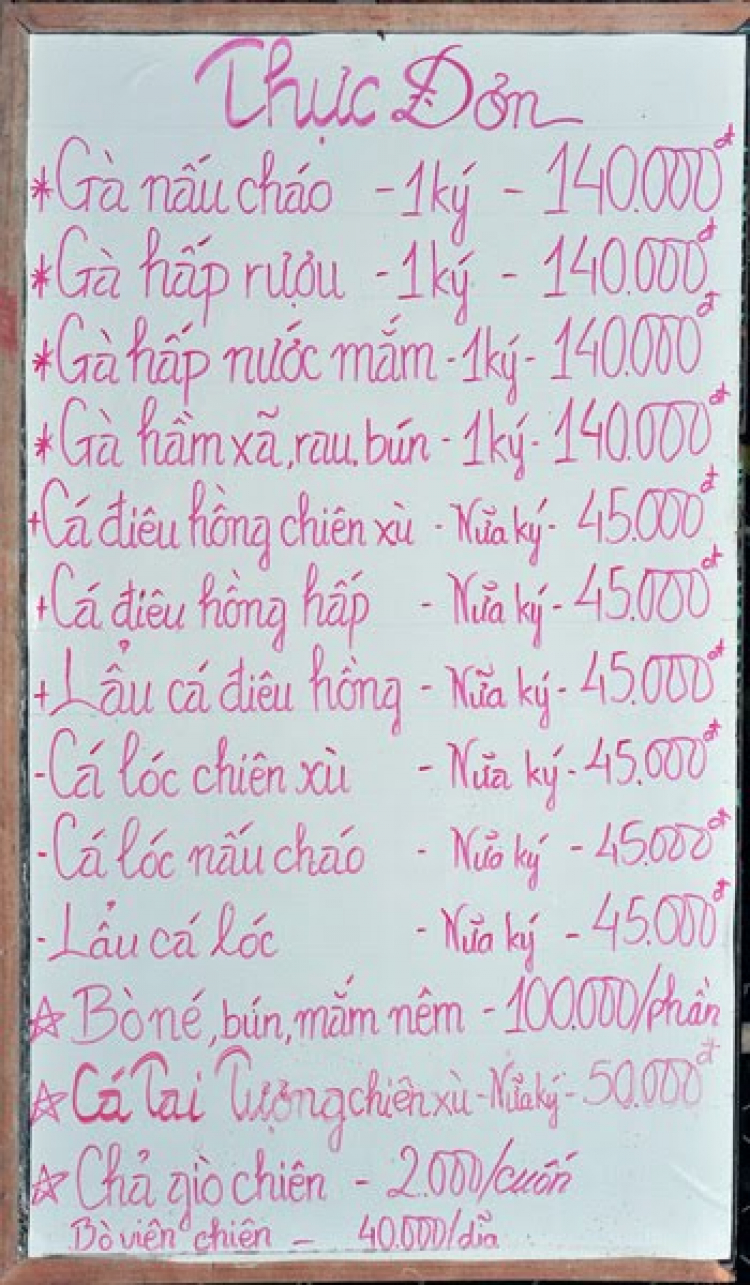 Thực Đơn
* Gà nấu cháo - 1ký - 140.000đ
* Gà hấp rượu - 1ký - 140.000đ
* Gà hấp nước mắm - 1ký - 140.000đ
* Gà hầm xã, rau, bún - 1ký - 140.000đ
+ Cá điêu hồng chiên xù - Nửa ký - 45.000đ
+ Cá điêu hồng hấp - Nửa ký - 45.000đ
+ Lẩu cá điêu hồng - Nửa ký - 45.000đ
- Cá lóc chiên xù - Nửa ký - 45.000đ
- Cá lóc nấu cháo - Nửa ký - 45.000đ
- Lẩu cá lóc - Nửa ký - 45.000đ
☆ Bò né, bún, mắm nêm - 100.000/phần
☆ Cá Tai Tượng chiên xù - Nửa ký - 50.000đ
☆ Chả giò chiên - 2.000/cuốn
Bò viên chiên - 40.000/dĩa